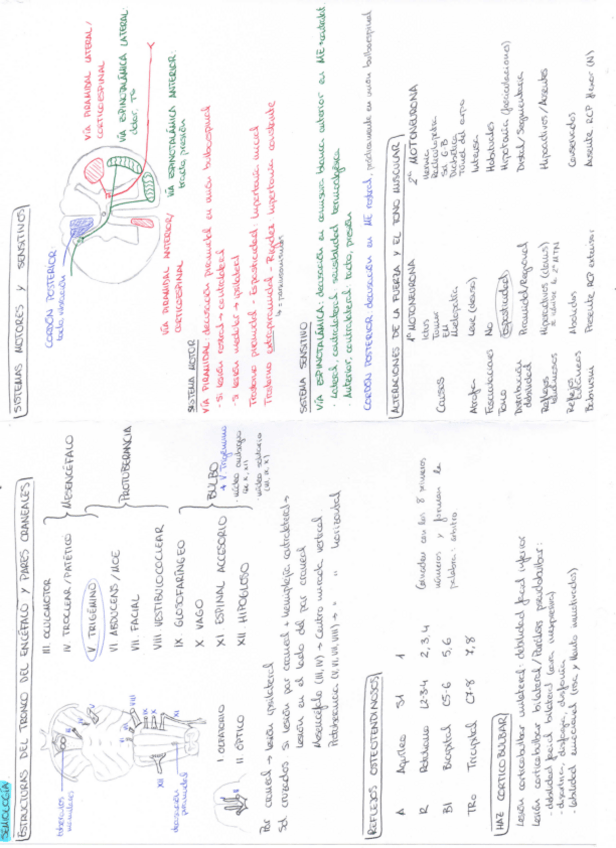 SEMIOLOGÍA
ESTRUCTURAS DEL TRONCO DEL ENCÉFALO Y PARES CRANEALES
III. OCULOMOTOR
IV TROCLEAR/PATÉTICO
MESENCÉFALO
V TRIGÉMINO
VI ABDUCENS/MOE
VII FACIAL
VIII VESTIBULOCOCLEAR
PROTUBERANCIA
IX GLOSOFARÍNGEO
X VAGO
XI ESPINAL ACCESORIO
XII HIPOGLOSO
BULBO
+ V. Trigémino
I OLFATORIO
II ÓPTICO
Par craneal → lesión ipsilateral
Sd. cruzados si lesión par craneal + hemiplejia contralateral →
lesión en el lado del par craneal
Mesencéfalo (III, IV) → Centro mirada vertical
Protuberancia (V, VI, VII, VIII) → " " horizontal
REFLEJOS OSTEOTENDINOSOS
A Aquíleo S1 1
R Rotuliano L2-3-4 2, 3, 4
BI Bicipital C5-6 5, 6
TRO Tricipital C7-8 7, 8
con los 8 primeros
números y forman la
palabra: arbitro
HAZ CORTICOBULBAR
Lesión corticobulbar unilateral: debilidad facial inferior
Lesión corticobulbar bilateral/Parálisis pseudobulbar:
- debilidad facial bilateral (cara inexpresiva)
- disartria, disfagia, disfonía
- labilidad emocional (risa y llanto inmotivados)
SISTEMAS MOTORES Y SENSITIVOS
CORDÓN POSTERIOR:
tacto vibración
VÍA PIRAMIDAL LATERAL/
CORTICOESPINAL
VÍA ESPINOTALÁMICA LATERAL:
dolor, Tª
VÍA PIRAMIDAL ANTERIOR/
CORTICOESPINAL
VÍA ESPINOTALÁMICA ANTERIOR:
tracto, presión
SISTEMA MOTOR
VÍA PIRAMIDAL: decusación piramidal en unión bulboespinal
- Si lesión rostral → contralateral
- Si lesión medular → ipsilateral
Trastorno piramidal - Espasticidad: hipertonía inicial
Trastorno extrapiramidal - Rigidez: hipertonía constante
SISTEMA SENSITIVO
VÍA ESPINOTALÁMICA: decusación en comisura blanca anterior en ME
- Lateral, contralateral: sensibilidad termoalgésica
- Anterior, contralateral: tacto, presión
CORDÓN POSTERIOR decusación en ME rostral, prácticamente en unión bulboespinal
ALTERACIONES DE LA FUERZA Y EL TONO MUSCULAR
1ª MOTONEURONA 2ª MOTONEURONA
Causas
Ictus
Tumor
EM
Mielopatía
Hernia
Sd. G-B
Diabética
Túnel del carpo
Atrofia Leve (desuso) Intensa
Fasciculaciones No Habituales
Tono Espasticidad Hipotonía (fasciculaciones)
Distribución debilidad Piramidal/Regional Distal/Segmentaria
Reflejos Hiperactivos (clonus) Hipoactivos/Ausentes
Reflejos cutáneos Abolidos Conservados
Babinski Presente RCP extensor Ausente RCP flexor (N)